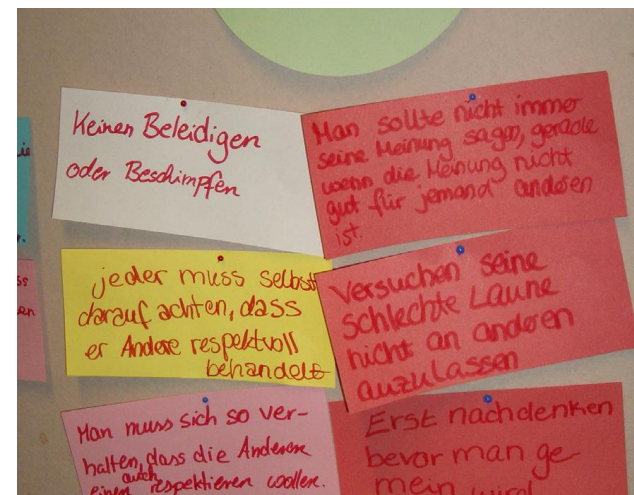 Keinen Beleidigen
oder Beschimpfen
Man sollte nicht immer
seine Meinung sagen, gerade
wenn die Meinung nicht
gut für jemand anderen
ist.
jeder muss selbst
darauf achten, dass
er Andere respektvoll
behandelt
Versuchen seine
schlechte Laune
nicht an anderen
auzulassen
Man muss sich so ver-
halten, dass die Anderen
einen auch respektieren wollen.
Erst nachdenken
bevor man ge-
mein wird